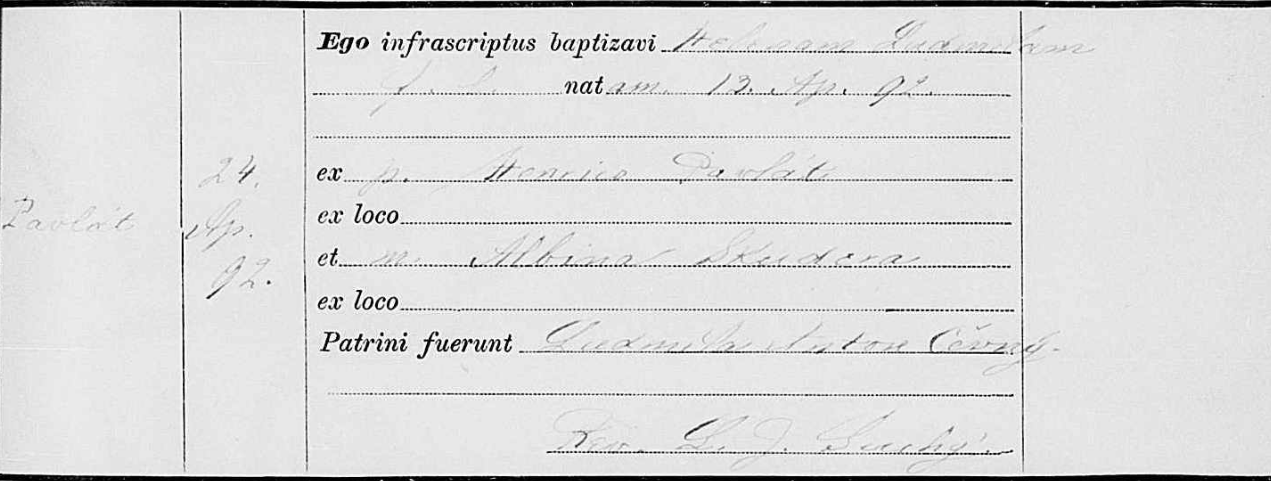 Pavlát
24.
Ap.
92.
Ego infrascriptus baptizavi Helenam Ludmilam
f. l. natam. 13. Ap. 92.
ex p. Henrico Pavlát
ex loco
et m. Albina Skudera
ex loco
Patrini fuerunt Ludmila Anton Černý.
Rev. L. J. Suchý.